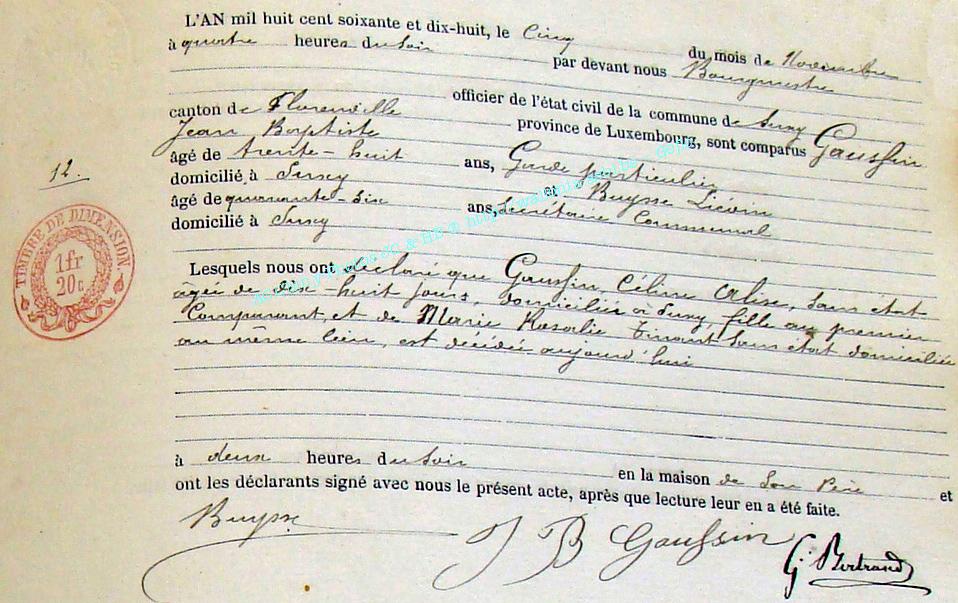 L'AN mil huit cent soixante et dix-huit, le Cinq du mois de Novembre
à quatre heures du soir par devant nous Bourgmestre
officier de l'état civil de la commune de Suxy
canton de Florenville province de Luxembourg, sont comparus Gaussin
Jean Baptiste
âgé de trente-huit ans, Garde particulier
domicilié à Suxy et Buysse Liévin
âgé de quarante-six ans, secrétaire Communal
domicilié à Suxy
12.
TIMBRE DE DIMENSION.
1fr
20c
Lesquels nous ont déclaré que Gaussin, Céline Alise, sans état
âgée de dix-huit jours, domiciliée à Suxy, fille au premier
Comparant, et de Marie Rosalie Tinant sans état domiciliée
au même lieu, est décédée aujourd'hui
à deux heures du soir en la maison de son Père et
ont les déclarants signé avec nous le présent acte, après que lecture leur en a été faite.
Buysse J B Gaussin G. Bertrand